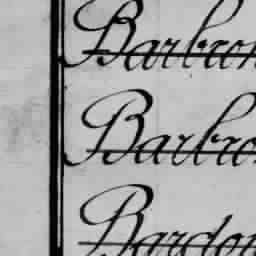 Barbron
Barbro
Bardon